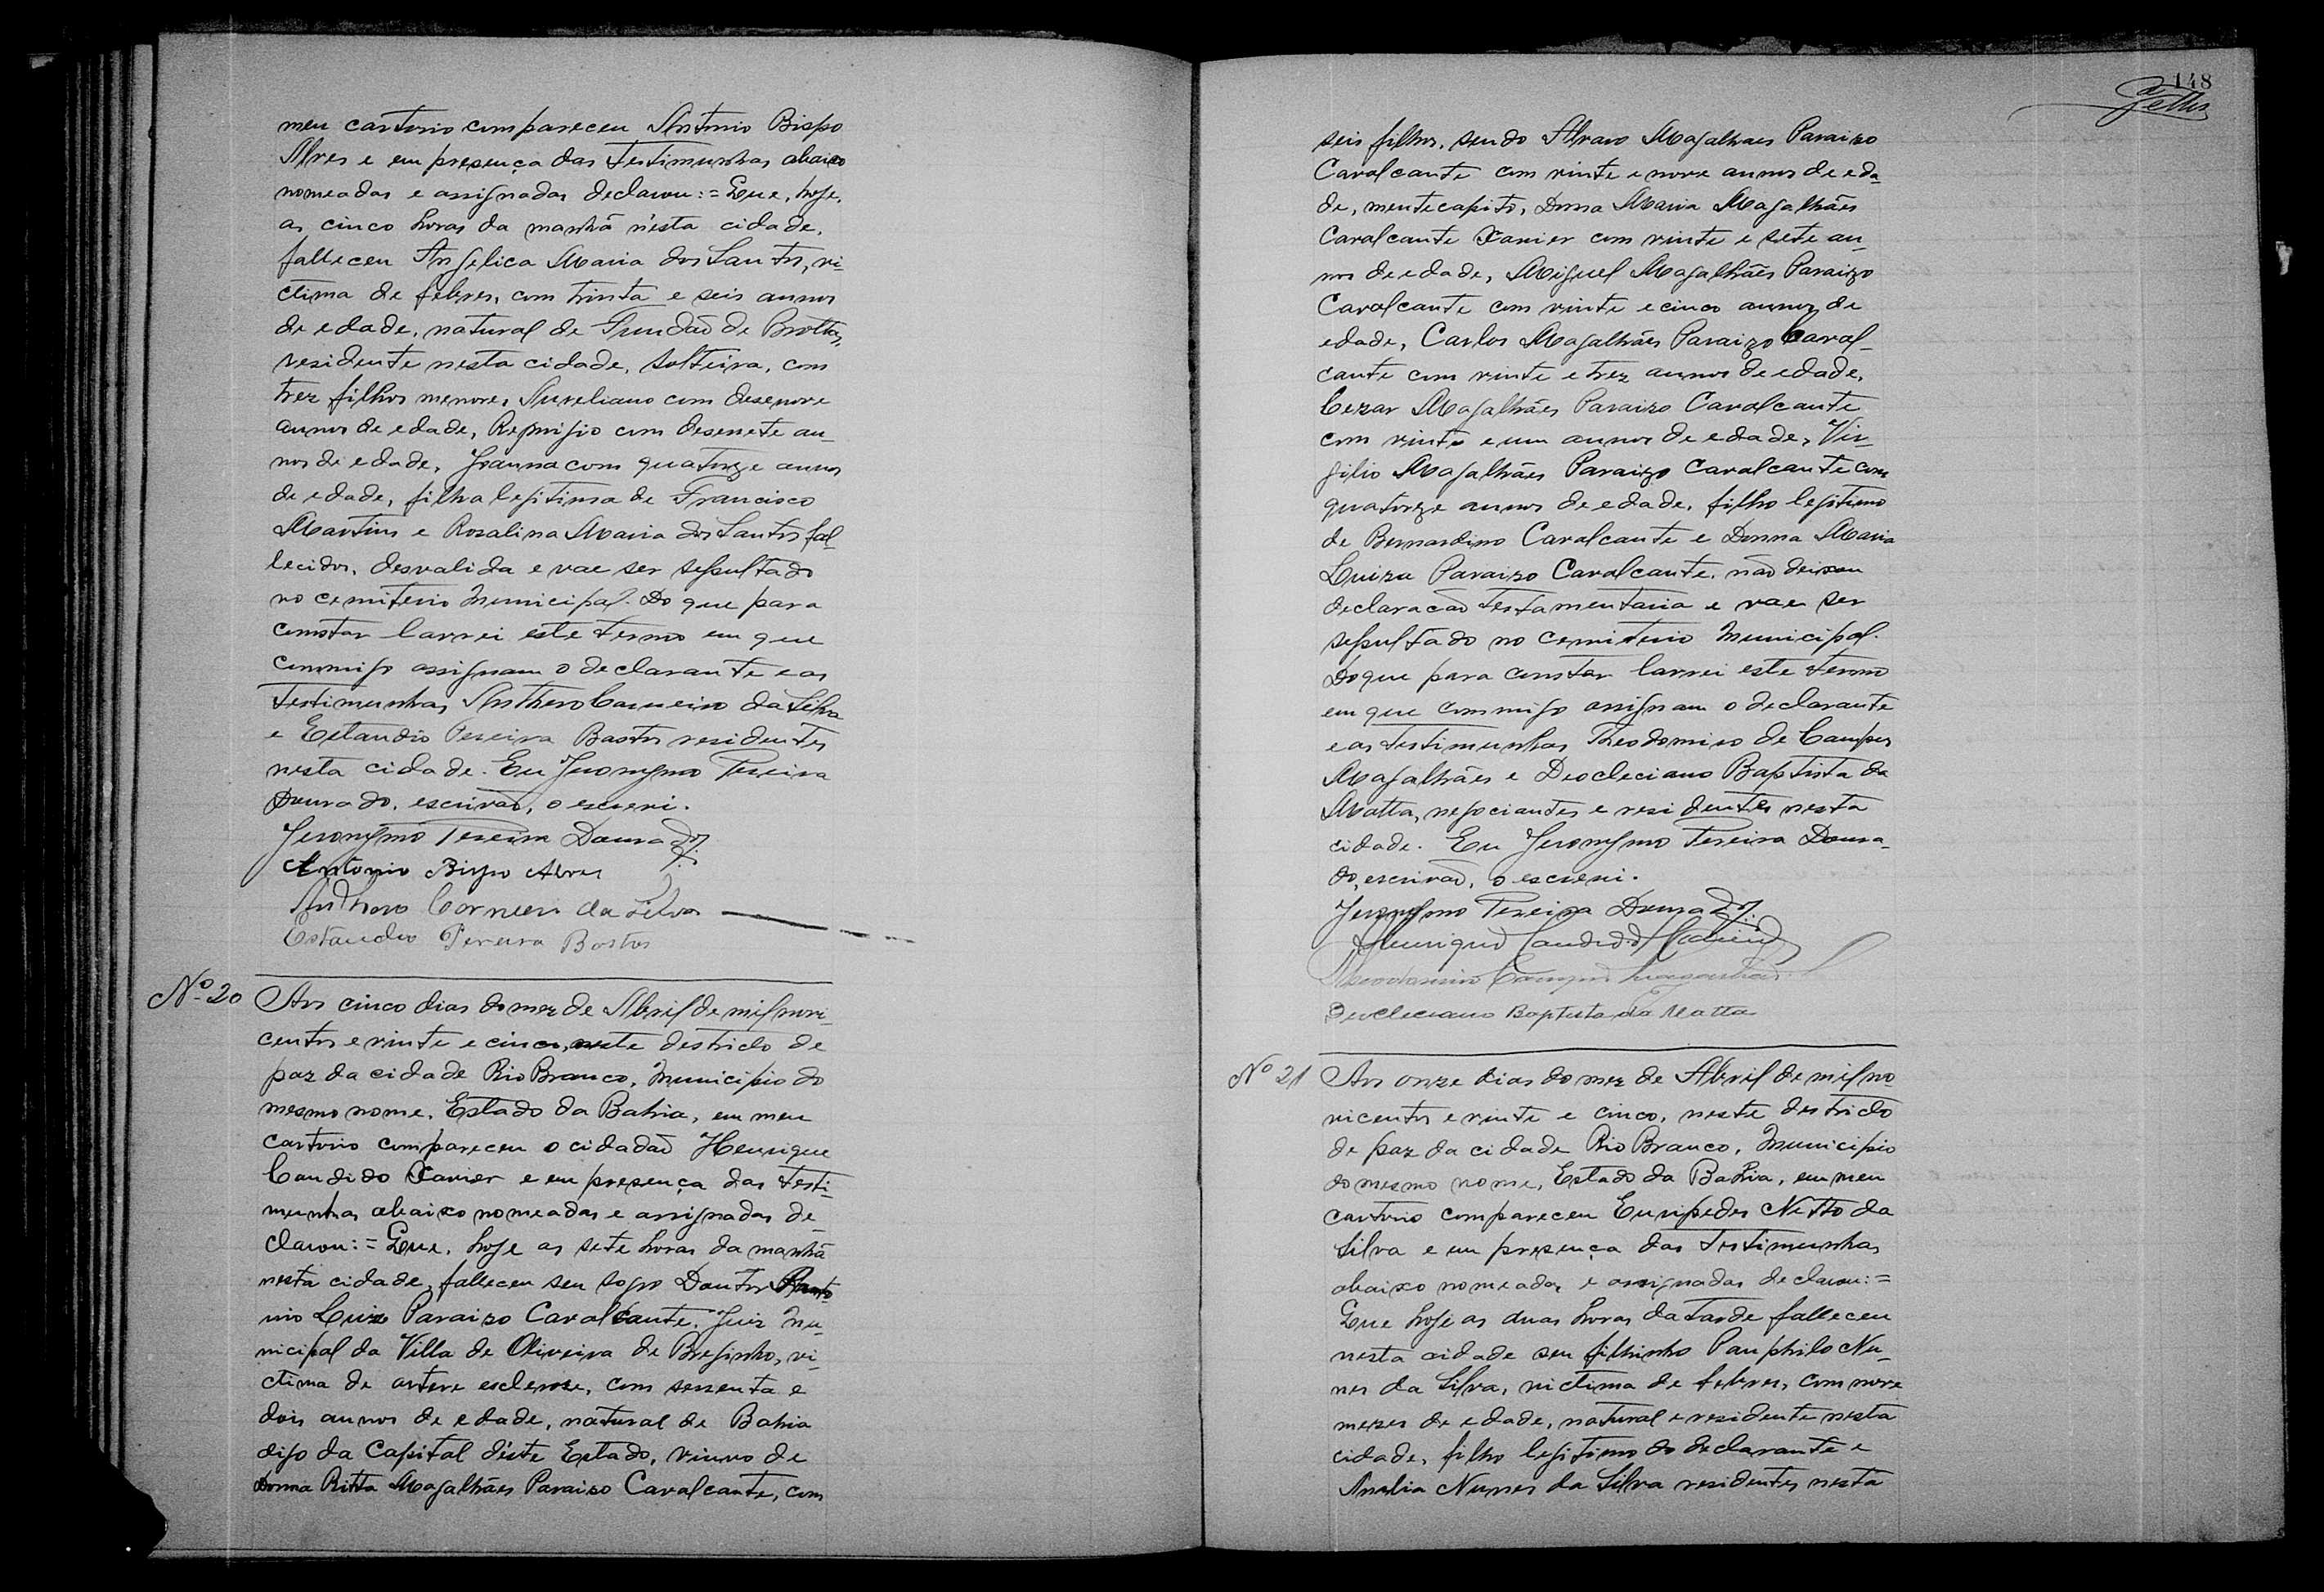 meu cartorio compareceu Antonio Bispo
Alves e em presença das testimunhas abaixo
nomeadas e assignadas declarou:= Que, hoje,
as cinco horas da manhã n'esta cidade,
falleceu Angelica Maria dos Santos, vi-
ctima de febres, com trinta e seis annos
de edade, natural de Fundão de Brottas,
residente nesta cidade, solteira, com
trez filhos menores Aureliano com desenove
annos de edade, Remigio com desesete an-
nos de edade, Joanna com quatorze annos
de edade, filha legitima de Francisco
Martins e Rosalina Maria dos Santos fal-
lecidos, desvalida e vae ser sepultado
no cemiterio Municipal. Do que para
constar lavrei este termo em que
commigo assignam o declarante e as
testimunhas Anthero Carneiro da Silva
e Estandio Pereira Bastos residentes
nesta cidade. Eu Jeronymo Pereira
Dourado, escrivão, o escrevi.
Jeronymo Pereira Dourado
Antonio Bispo Alves
Anthero Carneiro da Silva
Estandio Pereira Bastos
Nº 20 Aos cinco dias do mez de Abril de mil novi-
centos e vinte e cinco, neste destricto de
paz da cidade Rio Branco, Municipio do
mesmo nome, Estado da Bahia, em meu
cartorio compareceu o cidadão Henrique
Candido Xavier e em presença das testi-
munhas abaixo nomeadas e assignadas de-
clarou:= Que, hoje as sete horas da manhã
nesta cidade, falleceu seu sogro Doutor Anto-
nio Luiz Paraizo Cavalcante, Juiz Mu-
nicipal da Villa de Oliveira de Brejinho, vi-
ctima de artere esclerose, com sessenta e
dois annos de edade, natural de Bahia
digo da Capital d'este Estado, viuvo de
Donna Ritta Magalhães Paraizo Cavalcante, com
148
seis filhos, sendo Alvaro Magalhaes Paraizo
Cavalcante com vinte e nove annos de eda-
de, mentecapito, Donna Maria Magalhães
Cavalcante Xavier com vinte e sete an-
nos de edade, Miguel Magalhães Paraizo
Cavalcante com vinte e cinco annos de
edade, Carlos Magalhães Paraizo Caval-
cante com vinte e trez annos de edade,
Cezar Magalhães Paraizo Cavalcante
com vinte e um annos de edade, Vir-
gilio Magalhães Paraizo Cavalcante com
quatorze annos de edade, filho legitimo
de Bernardino Cavalcante e Donna Maria
Luiza Paraizo Cavalcante, não deixou
declaracão testamentaria e vae ser
sepultado no Cemiterio Municipal.
Do que para constar lavrei este termo
em que commigo assignam o declarante
e as testimunhas Theodomiro de Campos
Magalhães e Deocleciano Baptista da
Matta, negociantes e residentes nesta
cidade. Eu Jeronymo Pereira Doura-
do, escrivão, o escrevi.
Jeronymo Pereira Dourado
Henrique Candido Xavier
Theodomiro Campos Magalhães
Deocleciano Baptista da Matta
Nº 21 Aos onze dias do mez de Abril de mil no-
vicentos e vinte e cinco, neste destricto
de paz da cidade Rio Branco, Municipio
do mesmo nome, Estado da Bahia, em meu
cartorio compareceu Euripedes Netto da
Silva e em presença das testimunhas
abaixo nomeadas e assignadas declarou:=
Que hoje as duas horas da tarde falleceu
nesta cidade seu filhinho Pamphilo Nu-
nes da Silva, victima de febres, com nove
mezes de edade, natural e residente nesta
cidade, filho legitimo do declarante e
Analia Nunes da Silva residentes nesta